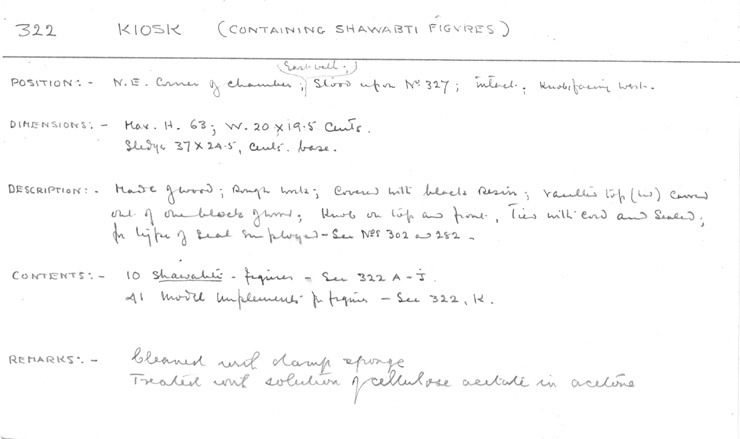 322 KIOSK (CONTAINING SHAWABTI FIGVRES)
East wall;
POSITION:- N.E. Corner of chamber; Stood upon No 327; intact; Knobs facing West.
DIMENSIONS:- Max. H. 63; W. 20 X 19.5 Cents.
Sledge 37 X 24.5, cents. base.
DESCRIPTION:- Made of wood; Rough work; Covered with black Resin; vaulted top (lid) carved
out of one block of wood; Knob on top and front, Tied with cord and Sealed;
for type of Seal employed - See Nos 302 and 282.
CONTENTS:- 10 Shawabti - figures - See 322 A-J.
41 model implements for figures - See 322, K.
REMARKS:- Cleaned with damp sponge
Treated with solution of cellulose acetate in acetone